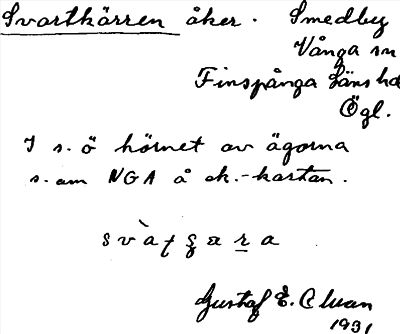 Svartkärren åker. Smedby
Vånga sn
Finspånga läns hd
Ögl.
I s. ö hörnet av ägorna
s. om NGA å ek.-kartan.
Gustaf E.
1931